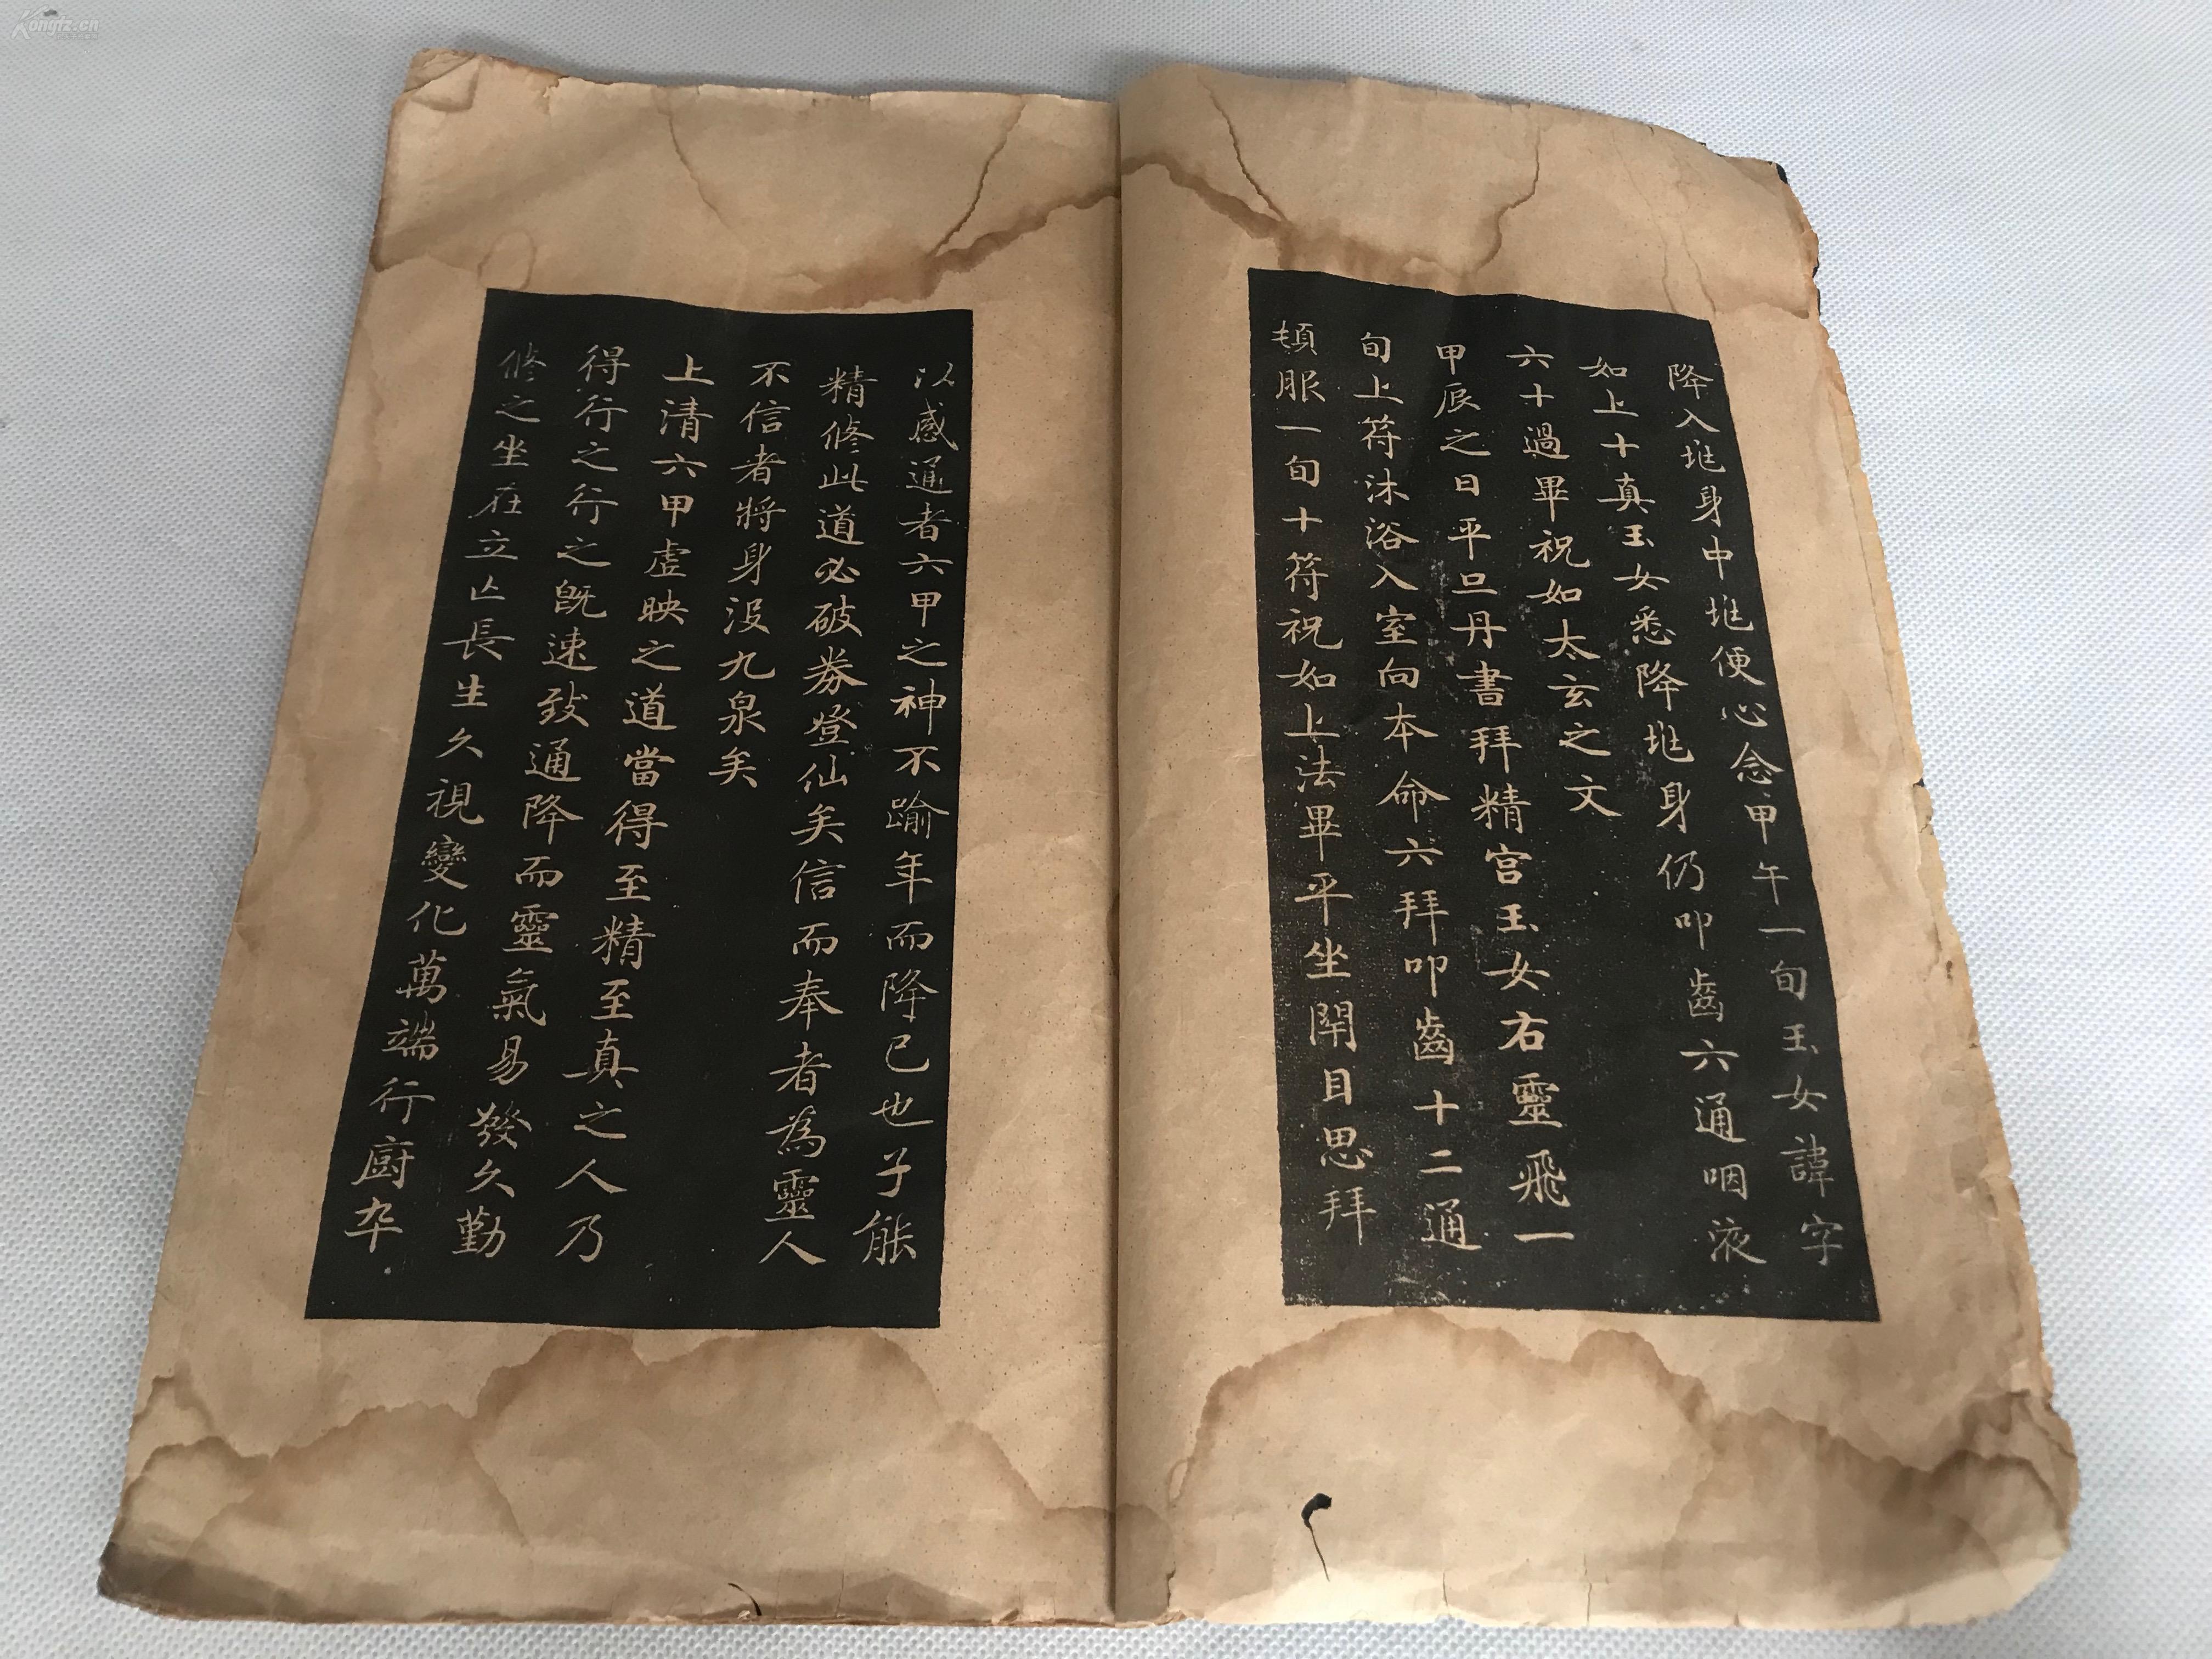 降入𡉏身中𡉏便心念甲午一旬玉女諱字
如上十真玉女悉降𡉏身仍叩齒六通咽液
六十過畢祝如太玄之文
甲辰之日平旦丹書拜精宮玉女右靈飛一
旬上符沐浴入室向本命六拜叩齒十二通
頓服一旬十符祝如上法畢平坐閇目思拜
以感通者六甲之神不踰年而降已也子能
精修此道必破券登仙矣信而奉者為靈人
不信者將身沒九泉矣
上清六甲虛映之道當得至精至真之人乃
得行之行之既速致通降而靈氣易發久勤
修之坐在立亡長生久視變化萬端行廚卒
Kongfz.cn